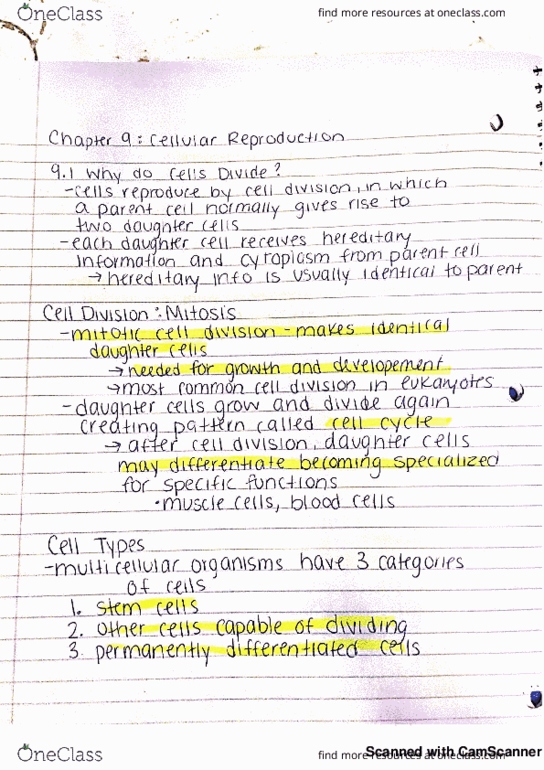 OneClass
find more resources at oneclass.com
Chapter 9: Cellular Reproduction
9.1 Why do Cells Divide?
-cells reproduce by cell division, in which
a parent cell normally gives rise to
two daughter cells
-each daughter cell receives hereditary
information and cytoplasm from parent cell
→ hereditary info is usually identical to parent
Cell Division: Mitosis
-mitotic cell division - makes identical
daughter cells
→ needed for growth and developement
→ most common cell division in eukaryotes
- daughter cells grow and divide again
creating pattern called cell cycle
→ after cell division, daughter cells
may differentiate becoming specialized
for specific functions
• muscle cells, blood cells
Cell Types
-multicellular organisms have 3 categories
of cells
1. stem cells
2. other cells capable of dividing
3. permanently differentiated cells
OneClass
find more resources at oneclass.com
Scanned with CamScanner